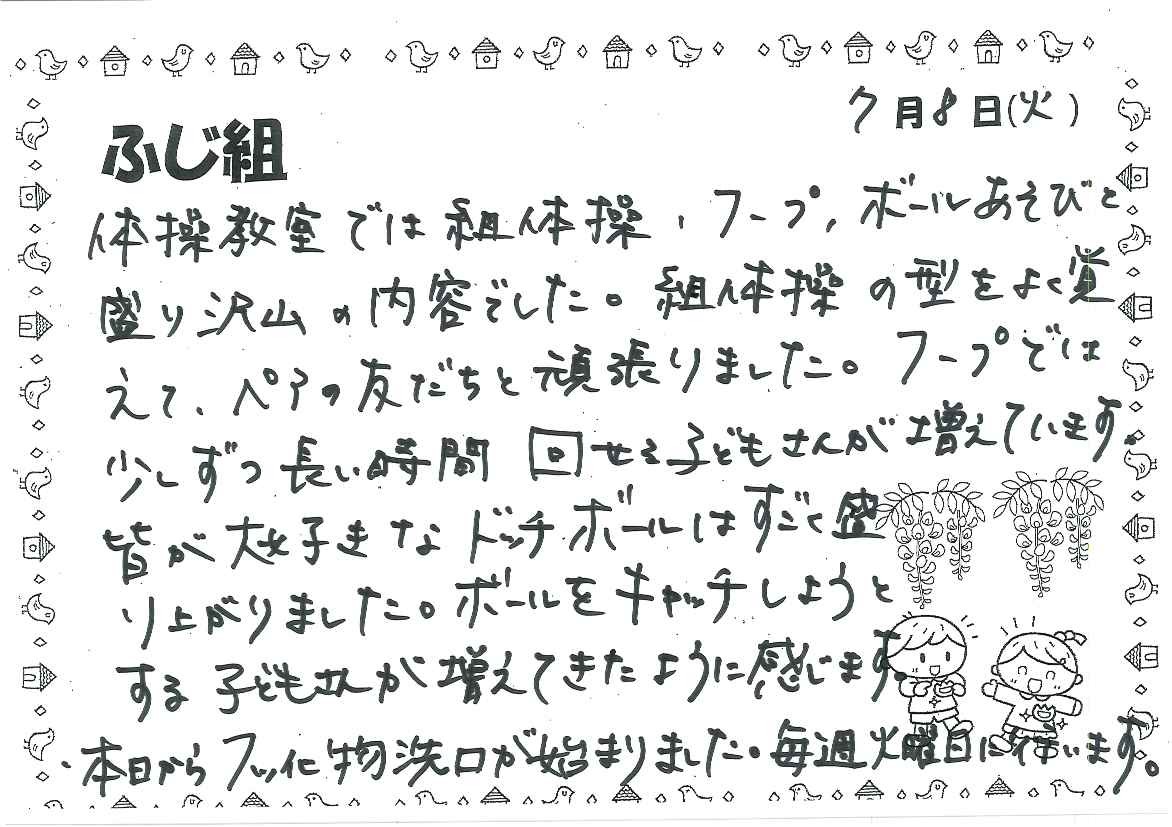 7月8日(火)
ふじ組
体操教室では組体操、フープ、ボールあそびと
盛り沢山の内容でした。組体操の型をよく覚
えて、ペアの友だちと頑張りました。フープでは
少しずつ長い時間 回せる子どもさんが増えています。
皆が大好きなドッチボールはすごく盛
り上がりました。ボールをキャッチしようと
する子どもさんが増えてきたように感じます。
・本日からフッ化物洗口が始まりました。毎週火曜日に行います。